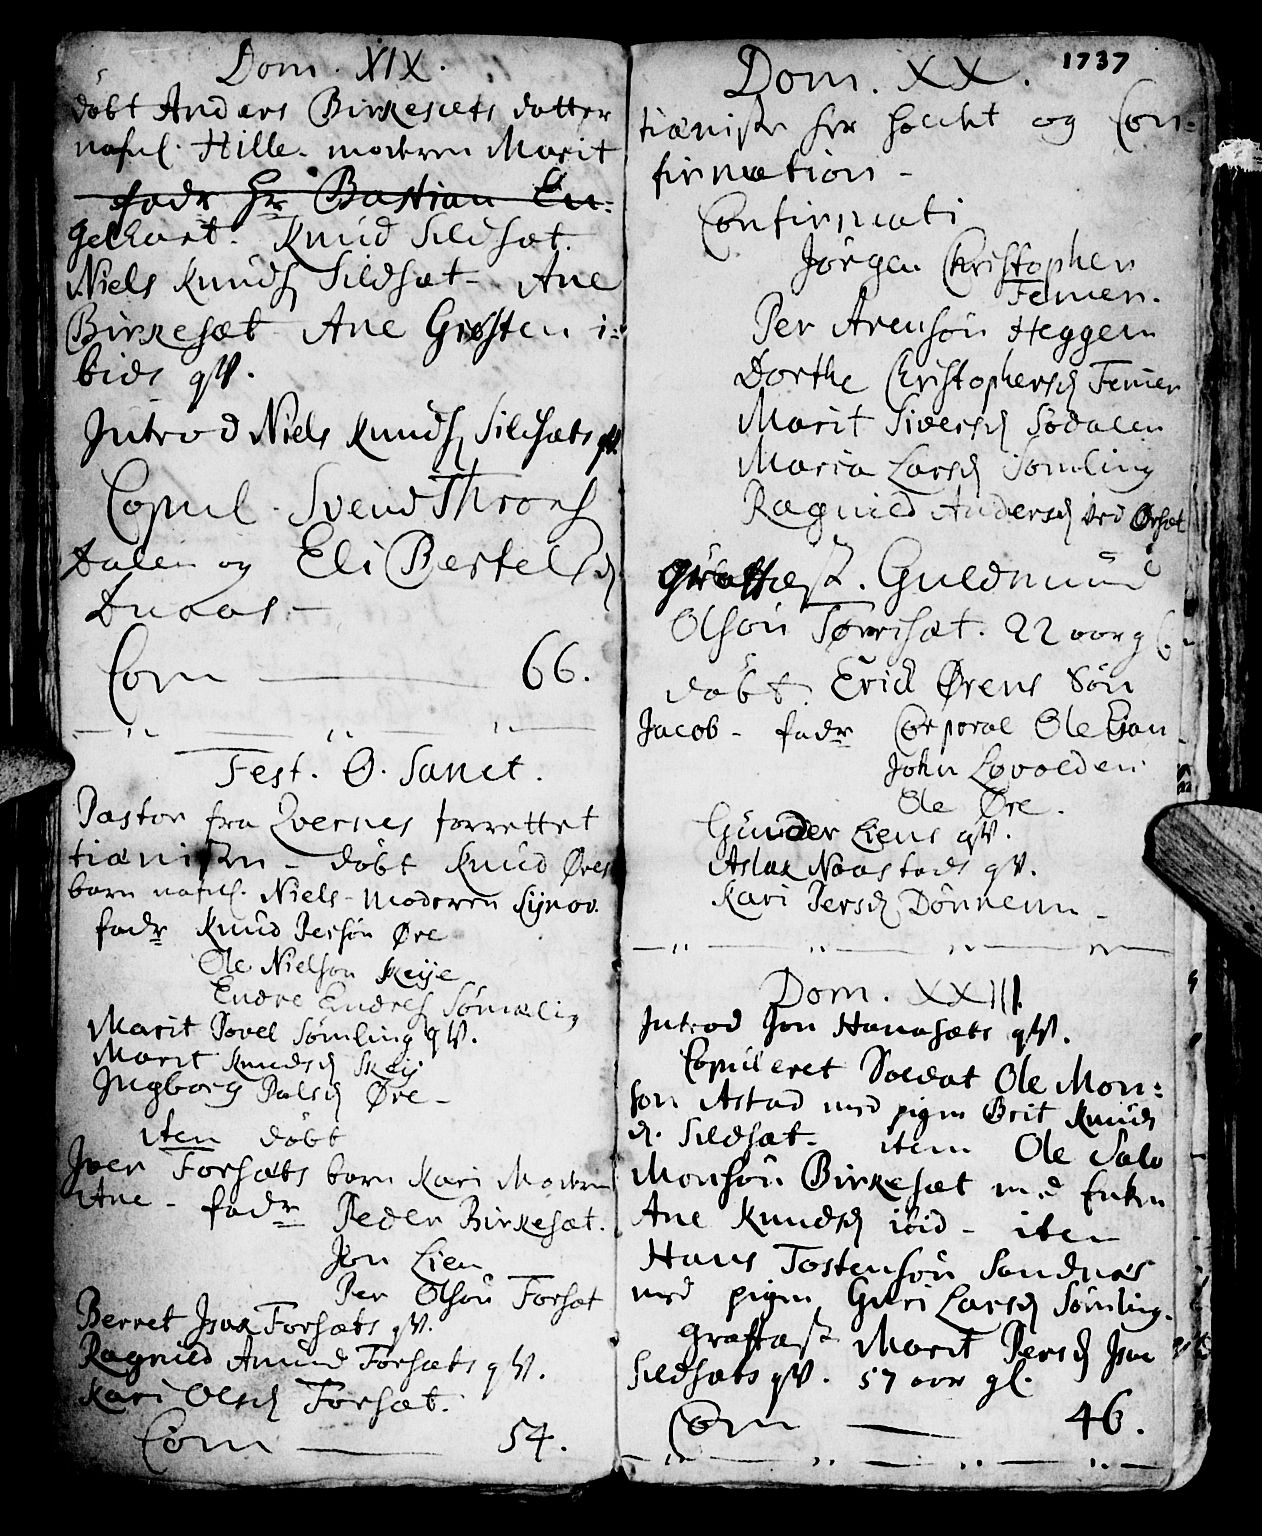 Dom. XIX.
döbt Anders Birkesets datter
nafnl. Hille. moderen Marit
fadr Hr Bastian En:
gelhart. Knud Sildsæt.
Niels Knuds Sildsæt - Ane
Birkesæt Ane Giösten i:
bids qv.
Introd Niels Knuds Sildsæts qv.
Copul. Svend Throns
Dalen og Eli Bertels
Dnaas -
Com 66.
Fest. O. Sanct.
Pastor fra Qvernes forrettet
döbt Knud Øres
barn nafnl. Niels - Moderen Synov.
fadr Knud Persön Øre
Ole Nielson Skeije
Endre Endres Sömeling
Marit Povel Sömling qv.
Marit Knudsd Skeij
Ingborg Palsd Øre -
iten döbt
Iver Forsæts barn Kari Modern
Ane - fadr Peder Birkesæt.
Jon Lien
Per Olsön Forsæt
Berret Isak Forsæts qv.
Ragnild Amund Forsæts qv.
Kari Olsd Forsæt.
Com 54.
1737
Dom. XX.
og Con-
firmation -
Confirmati
Jörgen Christophen
Femen.
Per Arensön Heggem
Dorthe Christophersd Femen
Marit Siversd Södalen
Maria Larsd Sömling
Ragnild Andersd Ørsæt
Graffæst. Guldmund
Olsön 22 aar g
döbt. Erick Ørens Sön
Jacob - fadr Corporal Ole
John Lovolden
Ole Øre.
Gunder Liens qv.
Aslak Naastads qv.
Kari Persd Dönnem -
Dom. XXIII.
Introd Jon Hanasæts qv.
Copuleret Soldat Ole Mon:
son Astad med pigen Brit Knuds
d. Sildsæt. item Ole Salo
Monsön Birkesæt med Enken
Ane Knudsd ibid - iten
Hans Tostensön Sandnæs
med pigen Guri Larsd Sömling.
Graffæst Marit Persd
Sildsæts qv. 57 aar gl.
Com 46.